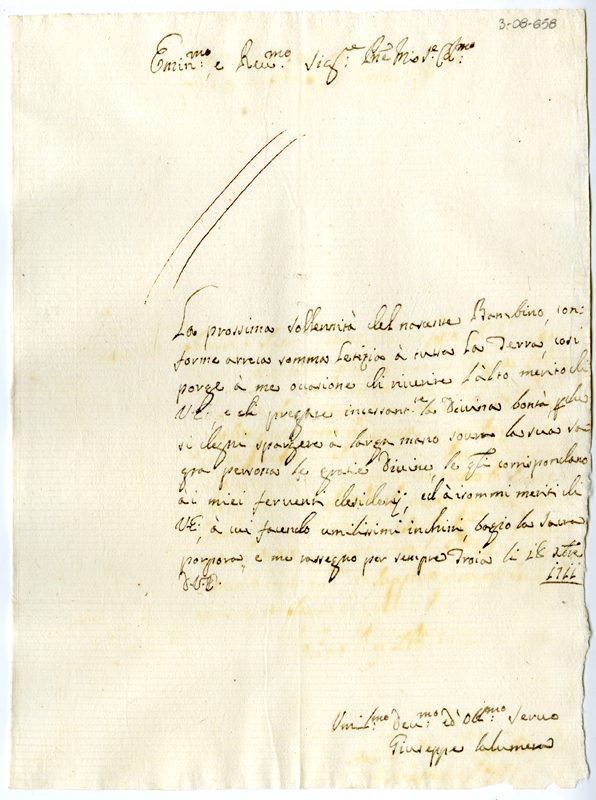 3-08-658
Emin.mo e Rev.mo Sig.re Pne Mio Sre Col.mo
La prossima sollennità del nascente Bambino, con:
forme arreca somma letizia à tutta la Terra, così
porge à me occasione di riverire l'alto merito di
V.E:, e di pregare incessant.te la Divina bontà, che
si degni spargere à larga mano sovra la sua sa
gra persona le gratie Divine, le q.li corrispondano
à i miei ferventi desiderij, ed à i sommi meriti di
V.E:, à cui facendo umilissimi inchini, bagio la Sacra
porpora, e me rassegno per sempre Troia li 18 Xbre
D.V.E. 1711
Umil.mo Dev.mo ed Obl.mo Servo
Giuseppe